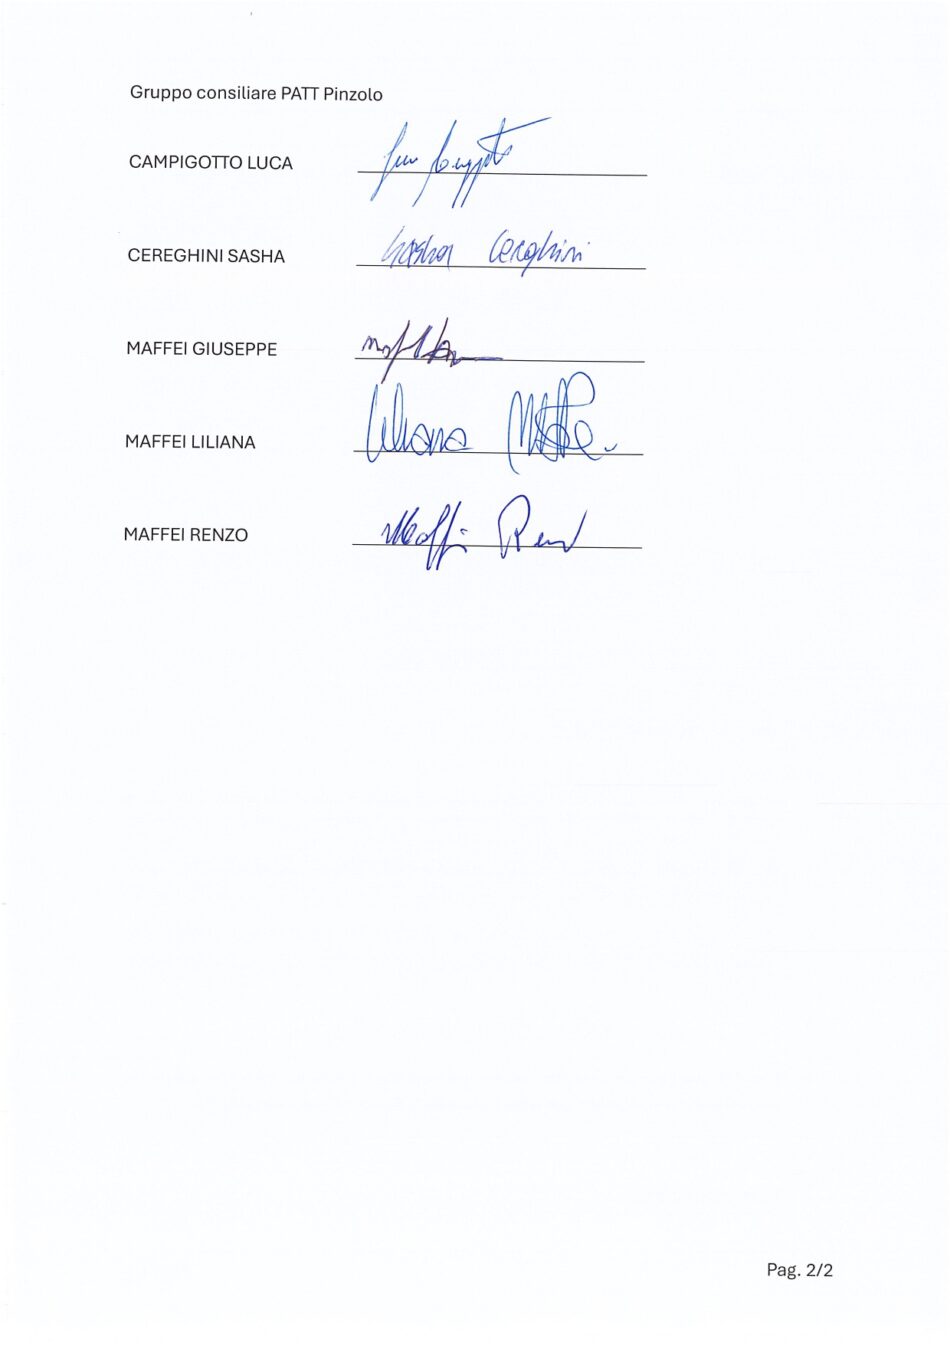 Gruppo consiliare PATT Pinzolo
CAMPIGOTTO LUCA
CEREGHINI SASHA Sasha Cereghini
MAFFEI GIUSEPPE
MAFFEI LILIANA Liliana
MAFFEI RENZO Maffei Renzo
Pag. 2/2